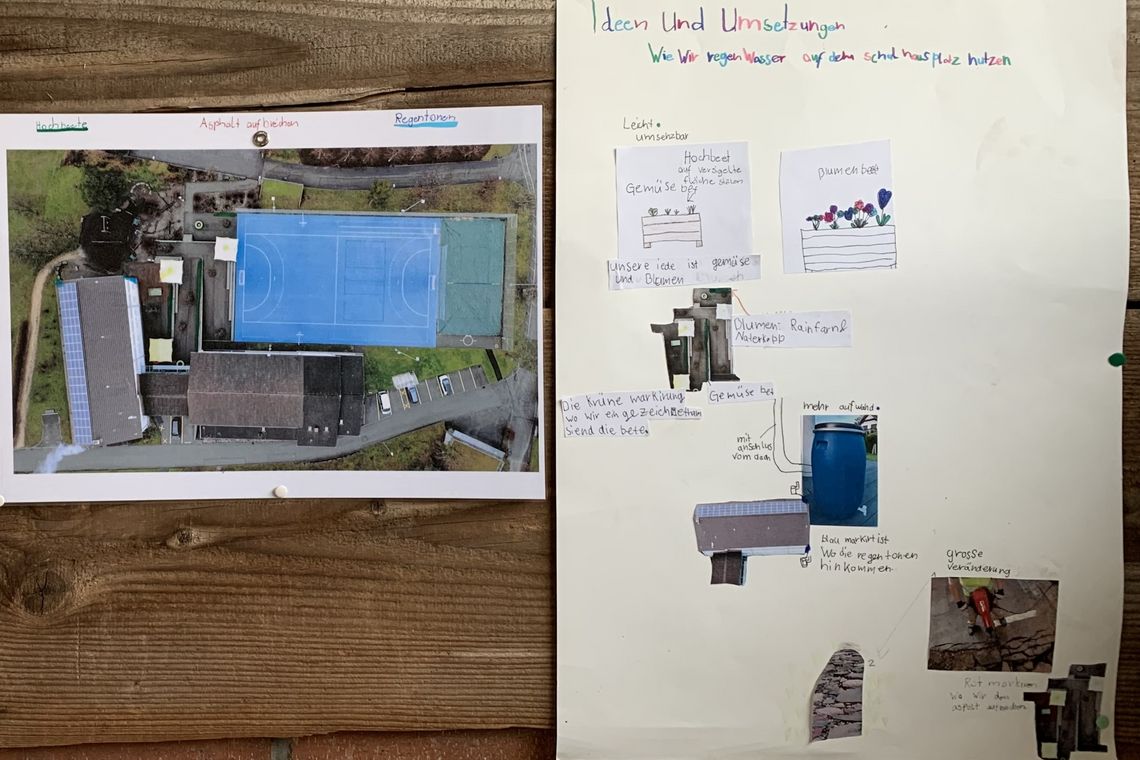 Hochbeete
Asphalt aufbrechen
Regentonen
Ideen Und Umsetzungen
Wie Wir regen Wasser auf dem schul hausplatz nutzen
Leicht
umsetzbar
Hochbeet
auf versigelte
fläche
Gemüse bet
Blumenbeet
unsere iede ist gemüse
und Blumen
Blumen: Rainfarn
Naterkopp
Die Krüne markirung
wo wir ein gezeichnet
siend die bete.
Gemüse bet
mehr aufwand.
mit
anschlus
vom dach
blau markirt ist
Wo die regentonen
hinkommen.
grosse
veränderung
2
Rot
wo wir den
asphalt